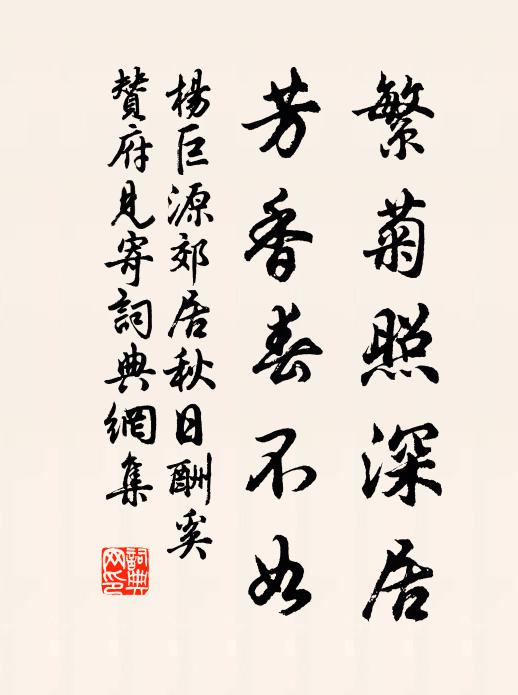 繁菊照深居
芳香春不如
楊巨源郊居秋日酬奚
贊府見寄詞典網集
詞典网印